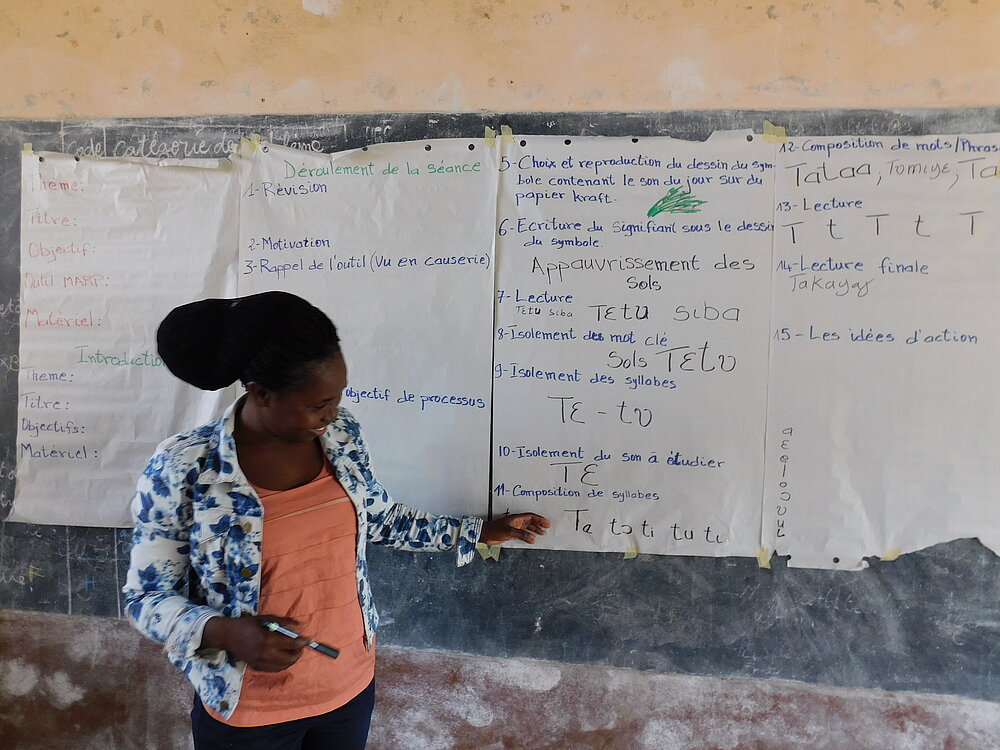 Code Catégorie de
Thème:
Titre:
Objectif:
Outil MARP:
Matériel:
Introduction
Theme:
Titre:
Objectifs:
Matériel:
Déroulement de la séance
1-Révision
2-Motivation
3-Rappel de l'outil (Vu en causerie)
objectif de processus
5-Choix et reproduction du dessin du sym-
bole contenant le son du jour sur du
papier kraft.
6-Ecriture du Signifiant sous le dessin
du symbole.
Appauvrissement des
Sols
7-Lecture
Tɛtʋ siba Tɛtʋ siba
8-Isolement des mot clé
Sols Tɛtʋ
9-Isolement des syllabes
Tɛ - tʋ
10-Isolement du son à étudier
Tɛ
11-Composition de syllabes
Te tɔ tɩ tu tɩ
12-Composition de mots/Phras
Talaa, Tomiyɛ, Ta
13-Lecture
T t T t T
14-Lecture finale
Takayaɣ
15-Les idées d'action
a
ɛ
e
ɩ
o
ɔ
ʋ
u